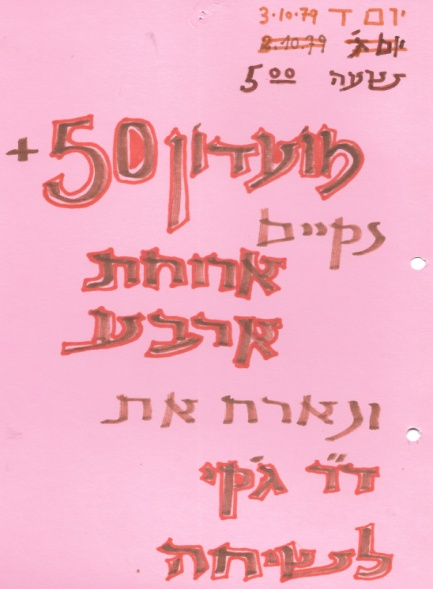 יום ד 3.10.79
יום ג' 2.10.79
בשעה 5 00
מועדון 50+
נקיים
ארוחת
ארבע
ונארח את
ד"ר ג'קי
לשיחה